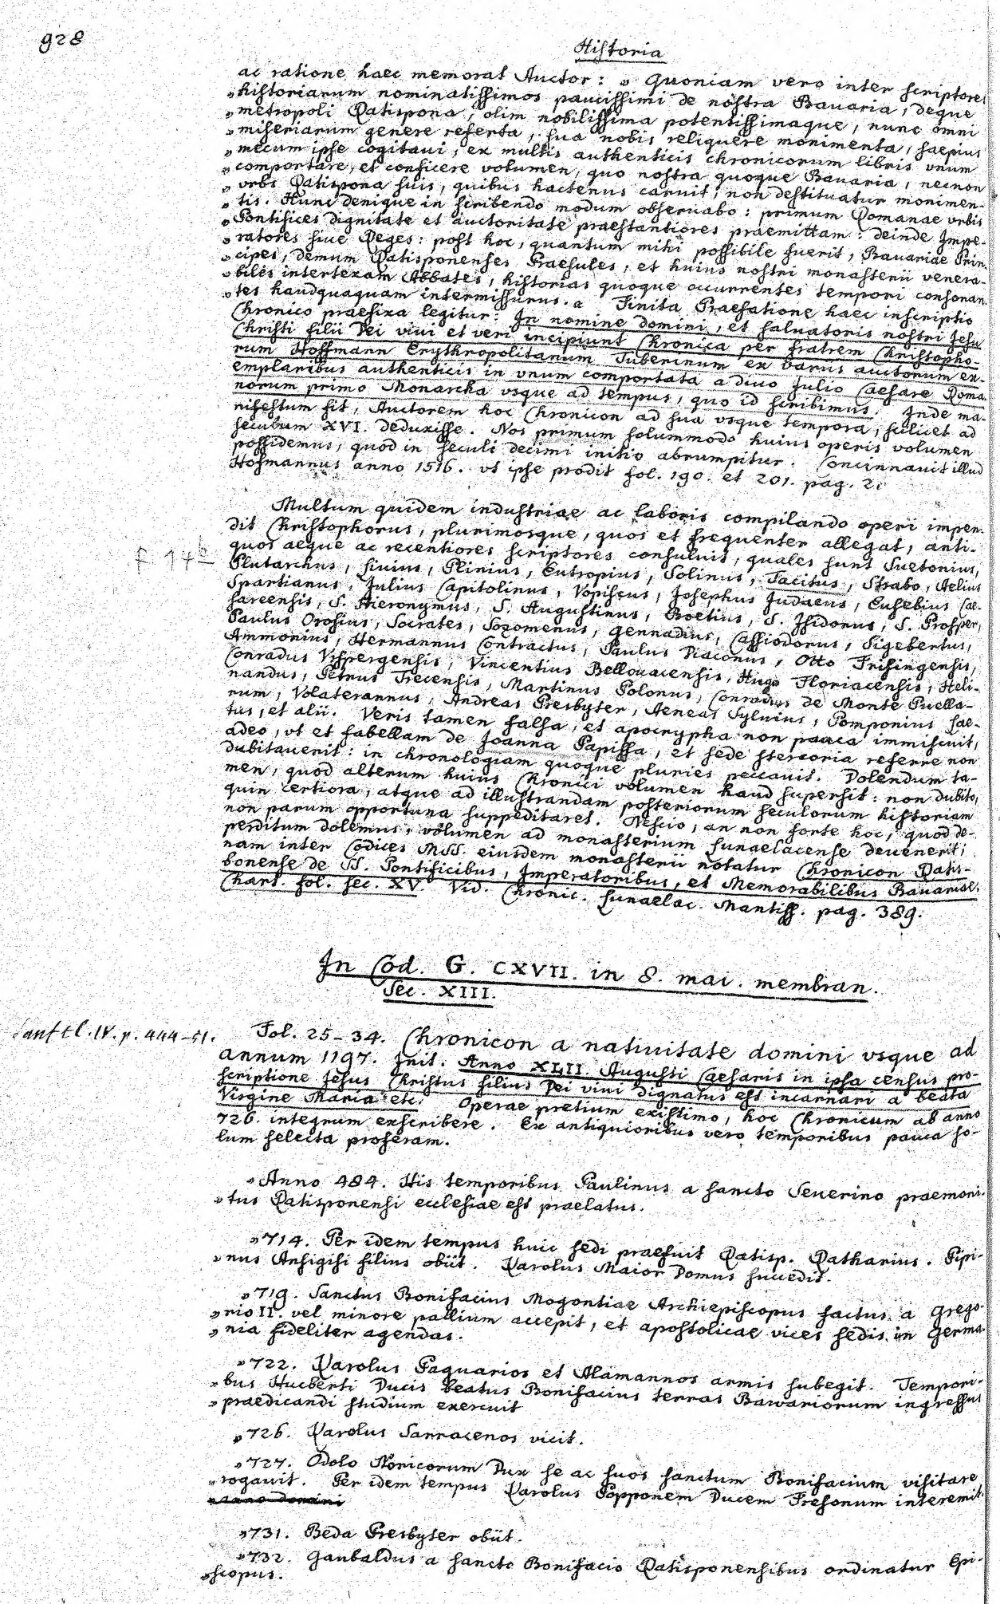 928
Historia
ac ratione haec memorat Auctor: „ Quoniam vero inter scriptores
„historiarum nominatissimos paucissimi de nostra Bavaria, deque
„metropoli Ratispona, olim nobilissima potentissimaque, nunc omni
„miseriarum genere referta, sua nobis reliquere monimenta, saepius
„mecum ipse cogitavi, ex multis authenticis chronicorum libris vnum
„comportare, et conficere volumen, quo nostra quoque Bavaria, necnon
„vrbs Ratispona suis, quibus hactenus caruit, non destituatur monimen-
„tis. Hunc denique in scribendo modum obseruabo: primum Romanae vrbis
„Pontifices dignitate et auctoritate praestantiores praemittam: deinde Impe-
„ratores siue Reges: post hoc, quantum mihi possibile fuerit, Bauariae Prin-
„cipes, demum Ratisponenses Praesules, et huius nostri monasterii venera-
„biles intertexam Abbates, historias quoque occurrentes tempori consonan-
„tes haudquaquam intermissurus. „ Finita Praefatione haec inscriptio
Chronico praefixa legitur: In nomine domini, et saluatoris nostri Jesu
Christi filii Dei viui et veri incipiunt Chronica per fratrem Christopho-
rum Hoffmann Erythropolitanum Tuberinum ex variis auctorum ex-
emplaribus authenticis in vnum comportata a diuo Julio Caesare Roma-
norum primo Monarcha vsque ad tempus, quo id scribimus. Inde ma-
nifestum fit, Auctorem hoc Chronicon ad sua vsque tempora, scilicet ad
seculum XVI. deduxisse. Nos primum solummodo huius operis volumen
possidemus, quod in seculi decimi initio abrumpitur. Concinnauit illud
Hofmannus anno 1516. vt ipse prodit fol. 190. et 201. pag. 2.
Multum quidem industriae ac laboris compilando operi impen-
dit Christophorus, plurimosque, quos et frequenter allegat, anti-
quos aeque ac recentiores scriptores consuluit, quales sunt Suetonius,
f. 14b
Plutarchus, Liuius, Plinius, Eutropius, Solinus, Tacitus, Strabo, Aelius
Spartianus, Julius Capitolinus, Vopiscus, Josephus Judaeus, Eusebius Cae-
sareensis, S. Hieronymus, S. Augustinus, Boetius, S. Isidorus, S. Prosper,
Paulus Orosius, Socrates, Sozomenus, Gennadius, Cassiodorus, Sigebertus,
Ammonius, Hermannus Contractus, Paulus Diaconus, Otto Frisingensis,
Conradus Vrspergensis, Vincentius Bellouacensis, Hugo Floriacensis, Heli-
nandus, Petrus Trecensis, Martinus Polonus, Conradus de Monte Puella-
rum, Volaterannus, Andreas Presbyter, Aeneas Syluius, Pomponius Lae-
tus, et alii. Veris tamen falsa, et apocrypha non pauca immiscuit,
adeo, vt et fabellam de Joanna Papissa, et sede stercoria referre non
dubitauerit: in chronologiam quoque pluries peccauit. Dolendum ta-
men, quod alterum huius Chronici volumen haud supersit: non dubito,
quin certiora, atque ad illustrandam posteriorum seculorum historiam
non parum opportuna suppeditaret. Nescio, an non forte hoc, quod de-
perditum dolemus, volumen ad monasterium Lunaelacense deuenerit;
nam inter Codices MSS. eiusdem monasterii notatur Chronicon Ratis-
bonense de SS. Pontificibus, Imperatoribus, et Memorabilibus Bauariae.
Chart. fol. sec. XV. Vid. Chronic. Lunaelac. Mantiss. pag. 389.
In Cod. G. CXVII. in 8. mai. membran.
Sec. XIII.
Sanftl. IV. p. 444-51.
Fol. 25-34. Chronicon a natiuitate domini vsque ad
annum 1197. Init. Anno XLII Augusti Caesaris in ipsa census pro-
scriptione Jesus Christus filius Dei vivi dignatus est incarnari a beata
Virgine Maria etc. Operae pretium existimo, hoc Chronicum ab anno
726. integrum exscribere. Ex antiquioribus vero temporibus pauca so-
lum selecta proferam.
„Anno 484. His temporibus Paulinus a sancto Seuerino praemoni-
„tus Ratisponensi ecclesiae est praelatus.
„714. Per idem tempus huic sedi praefuit Ratisp. Ratharius. Pipi-
„nus Ansigisi filius obiit. Karolus Maior Domus succedit.
„719. Sanctus Bonifacius Mogontiae Archiepiscopus factus a Grego-
„rio II. vel minore pallium accepit, et apostolicae vices sedis in Germa-
„nia fideliter agendas.
„722. Karolus Paguarios et Alamannos armis subegit. Tempori-
„bus Hucberti Ducis beatus Bonifacius terras Bawariorum ingressus
„praedicandi studium exercuit
„726. Karolus Sarracenos vicit.
„727. Odolo Noricorum Dux se ac suos sanctum Bonifacium visitare
„rogauit. Per idem tempus Karolus Popponem Ducem Fresonum interemit.
„anno domini
„731. Beda Presbyter obiit.
„732. Gaubaldus a sancto Bonifacio Ratisponensibus ordinatur Epi-
„scopus.